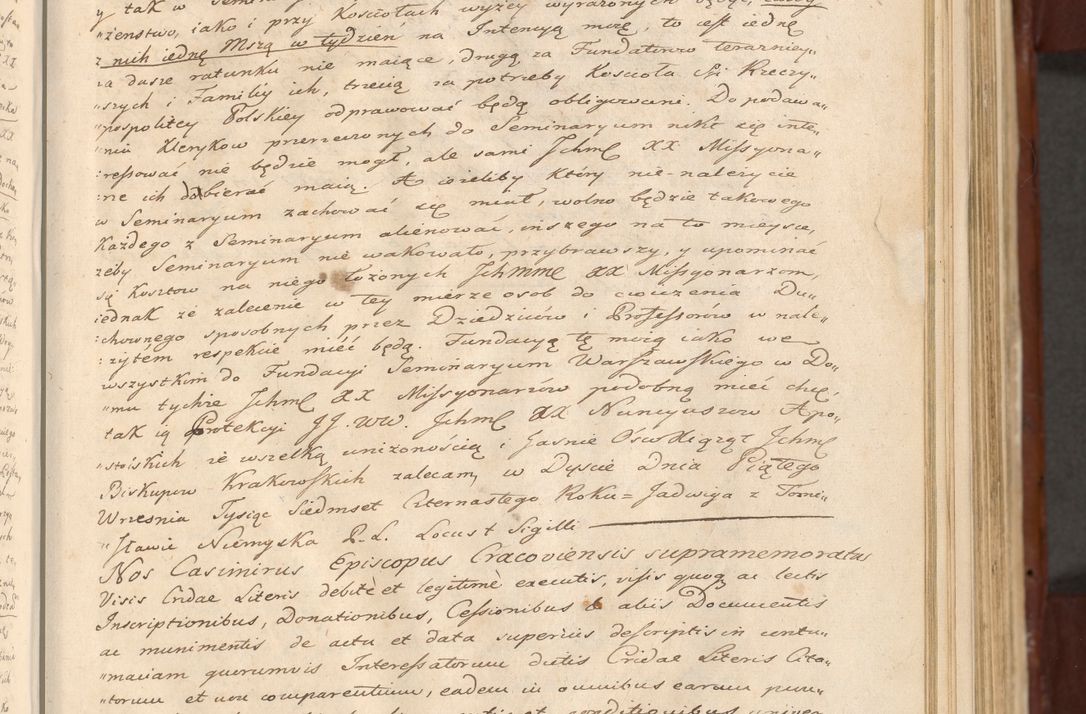 y tak w Semin
"żenstwo, iako i przy Kosciołach wyżey wyrażonych
z nich iednę Mszą w tydzień na Intencyą moię, to iest iednę
za dusze ratunku nie maiące, drugą za Fundatorow terazniey"
"szych i Familij ich, trzecią za potrzeby Koscioła S. i Rzeczy"
"pospolitey Polskiey odprawować będą obligowani. Do podawa"
"nia Klerykow przerzeczonych do Seminaryum nikt się inte"
:ressować nie będzie mogł, ale sami Jchmć XX Missyona"
:rze ich dobierać maią. A ieżeliby który nie-należycie
w Seminaryum zachować się miał, wolno będzie takowego
Każdego z Seminaryum alienować, inszego na to mieysce,
żeby Seminaryum nie wakowało, przybrawszy, y upominać
się Kosztow na niego łożonych Jchmmć XX Missyonarzom,
iednak że zalecenie w tey mierze osob do cwiczenia Du"
:chownego sposobnych przez Dziedziców i Professorów w nale"
:żytém respekcie mieć będą. Fundacyą tę moią iako we
wszystkim do Fundacyi Seminaryum Warszawskiego w Do"
"mu tychże Jchmć XX Missyonarzów podobną mieć chcę,
tak ią Protekcyi JJ.WW. Jchmć XX Nuncyuszow Apo"
"stolskich ze wszelką uniżonością i Jasnie Oświ Xiążąt Jchmć
Biskupow Krakowskich zalecam, w Dyscie dnia Piątego
Wrzesnia Tysiąc Siedmset Czternastego Roku = Jadwiga z Tomi"
"sławic Niemyska P. L. Locus + Sigilli
Nos Casimirus Episcopus Cracoviensis supramemoratus
Visis Cridae Literis debitè et legitimè executis, visis quoq ac lectis
Inscriptionibus, Donationibus, Cessionibus & aliis Documentis
ac munimentis de actu et data superiùs descriptis in contu"
"maciam quorumvis Interessatorum dictis Cridae Literis Cita"
"torum et non comparentium, eadem in omnibus earum pun"
et conditionibus